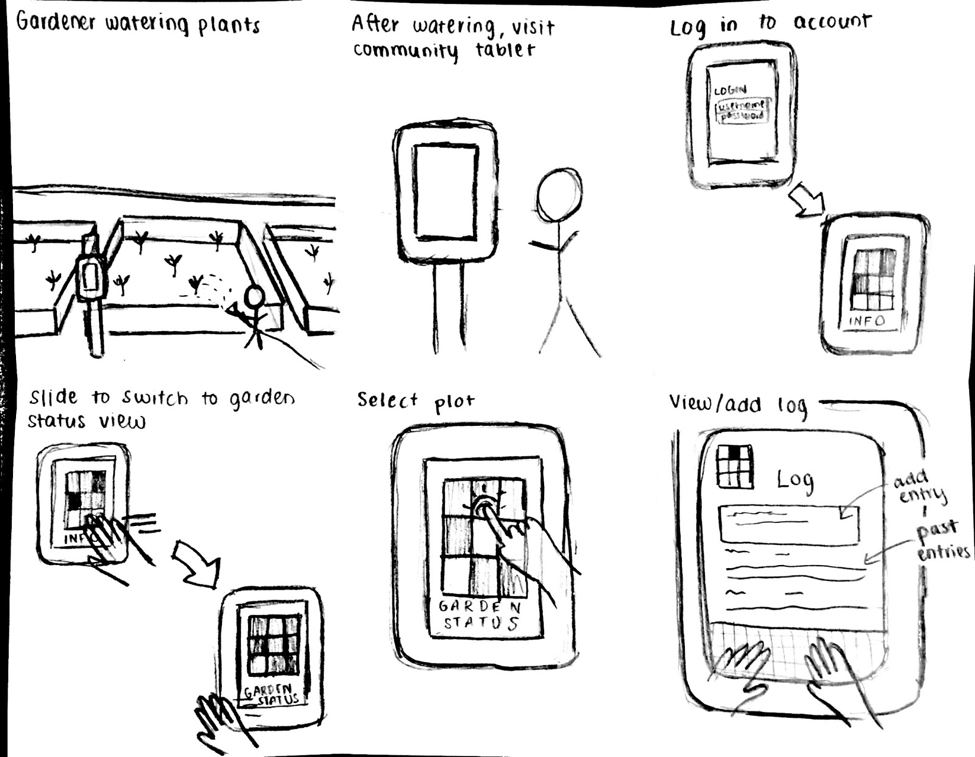 Gardener watering plants
After watering, visit
community tablet
Log in to account
LOGIN
username
password
INFO
Slide to switch to garden
status view
INFO
GARDEN
STATUS
Select plot
GARDEN
STATUS
View/add log
Log
add
entry
past
entries